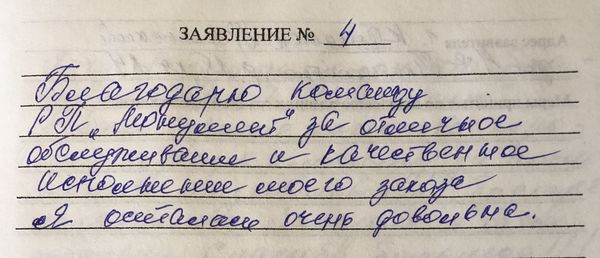 ЗАЯВЛЕНИЕ № 4
Благодарю команду
РП „Монумент" за отличное
обслуживание и качественное
исполнение моего заказа
Я осталась очень довольна.